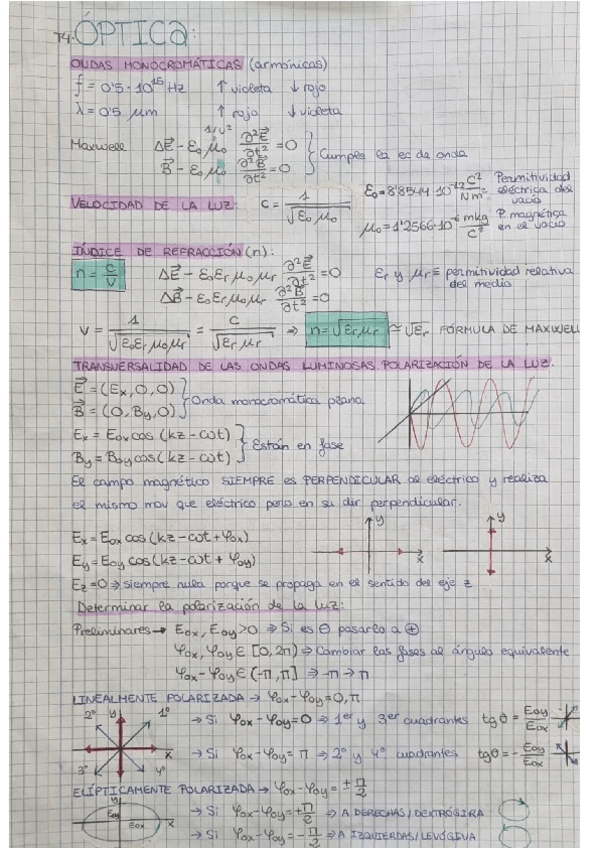 T4. ÓPTICA:
ONDAS MONOCROMÁTICAS (armónicas)
f = 0'5·10¹⁵ Hz ↑ violeta ↓ rojo
λ = 0'5 μm ↑ rojo ↓ violeta
1/v²
Maxwell ΔE⃗ - ε₀μ₀ ∂²E⃗/∂t² = 0
B⃗ - ε₀μ₀ ∂²B⃗/∂t² = 0 } Cumplen la ec de onda
VELOCIDAD DE LA LUZ: c = 1/√(ε₀μ₀)
ε₀ = 8'8544·10⁻¹² C²/Nm² Permitividad eléctrica del vacío
μ₀ = 1'2566·10⁻⁶ mkg/C² P. magnética en el vacío
ÍNDICE DE REFRACCIÓN (n):
n = c/v ΔE⃗ - ε₀εᵣμ₀μᵣ ∂²E⃗/∂t² = 0 εᵣ y μᵣ ≡ permitividad relativa del medio
ΔB⃗ - ε₀εᵣμ₀μᵣ ∂²B⃗/∂t² = 0
v = 1/√(ε₀εᵣμ₀μᵣ) = c/√(εᵣμᵣ) ⇒ n = √(εᵣμᵣ) ≅ √εᵣ FÓRMULA DE MAXWELL
TRANSVERSALIDAD DE LAS ONDAS LUMINOSAS. POLARIZACIÓN DE LA LUZ.
E⃗ = (Eₓ, 0, 0)
B⃗ = (0, By, 0) } Onda monocromática plana
Eₓ = E₀ₓ cos (kz - ωt)
By = B₀y cos (kz - ωt) } Están en fase
El campo magnético SIEMPRE es PERPENDICULAR al eléctrico y realiza
el mismo mov que eléctrico pero en su dir perpendicular.
Eₓ = E₀ₓ cos (kz - ωt + φ₀ₓ)
Ey = E₀y cos (kz - ωt + φ₀y)
y x y x
Ez = 0 ⇒ siempre nula porque se propaga en el sentido del eje z
Determinar la polarización de la luz:
Preliminares → E₀ₓ, E₀y > 0 ⇒ Si es ⊖ pasarlo a ⊕
φ₀ₓ, φ₀y ∈ [0, 2π) ⇒ Cambiar las fases al ángulo equivalente
φ₀ₓ - φ₀y ∈ (-π, π] ⇒ -π → π
LINEALMENTE POLARIZADA → φ₀ₓ - φ₀y = 0, π
2º y 1º x 3º 4º
→ Si φ₀ₓ - φ₀y = 0 ⇒ 1er y 3er cuadrantes tg θ = E₀y/E₀ₓ
→ Si φ₀ₓ - φ₀y = π ⇒ 2º y 4º cuadrantes tg θ = - E₀y/E₀ₓ
ELÍPTICAMENTE POLARIZADA → φ₀ₓ - φ₀y = ± π/2
y E₀y E₀ₓ x
→ Si φ₀ₓ - φ₀y = + π/2 ⇒ A DERECHAS/DEXTRÓGIRA
→ Si φ₀ₓ - φ₀y = - π/2 ⇒ A IZQUIERDAS/LEVÓGIVA